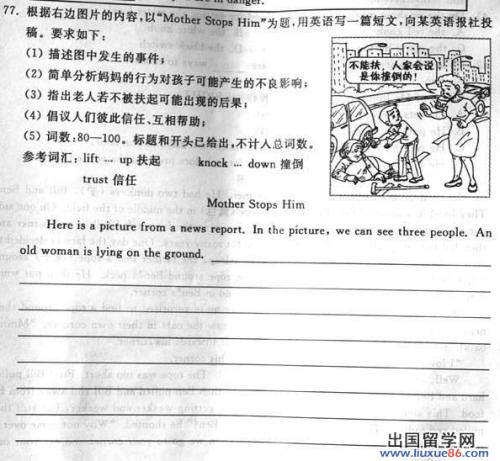 in danger.
77. 根据右边图片的内容,以“Mother Stops Him”为题,用英语写一篇短文,向某英语报社投
稿。要求如下:
(1) 描述图中发生的事件;
(2) 简单分析妈妈的行为对孩子可能产生的不良影响;
(3) 指出老人若不被扶起可能出现的后果;
(4) 倡议人们彼此信任、互相帮助;
(5) 词数:80—100。标题和开头已给出,不计人总词数。
参考词汇: lift … up 扶起 knock … down 撞倒
trust 信任
不能扶,人家会说
是你撞倒的!
Mother Stops Him
Here is a picture from a news report. In the picture, we can see three people. An
old woman is lying on the ground.
出国留学网
www.liuxue86.com